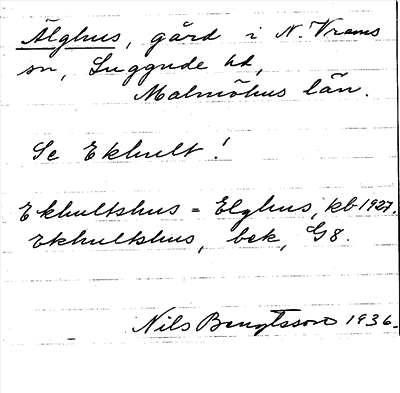 Älghus, gård i N. Vrams
sn, Luggude hd,
Malmöhus län.
Se Ekhult!
Ekhultshus = Elghus, kb 1927.
Ekhultshus, bek, G8.
Nils Bengtsson 1936.